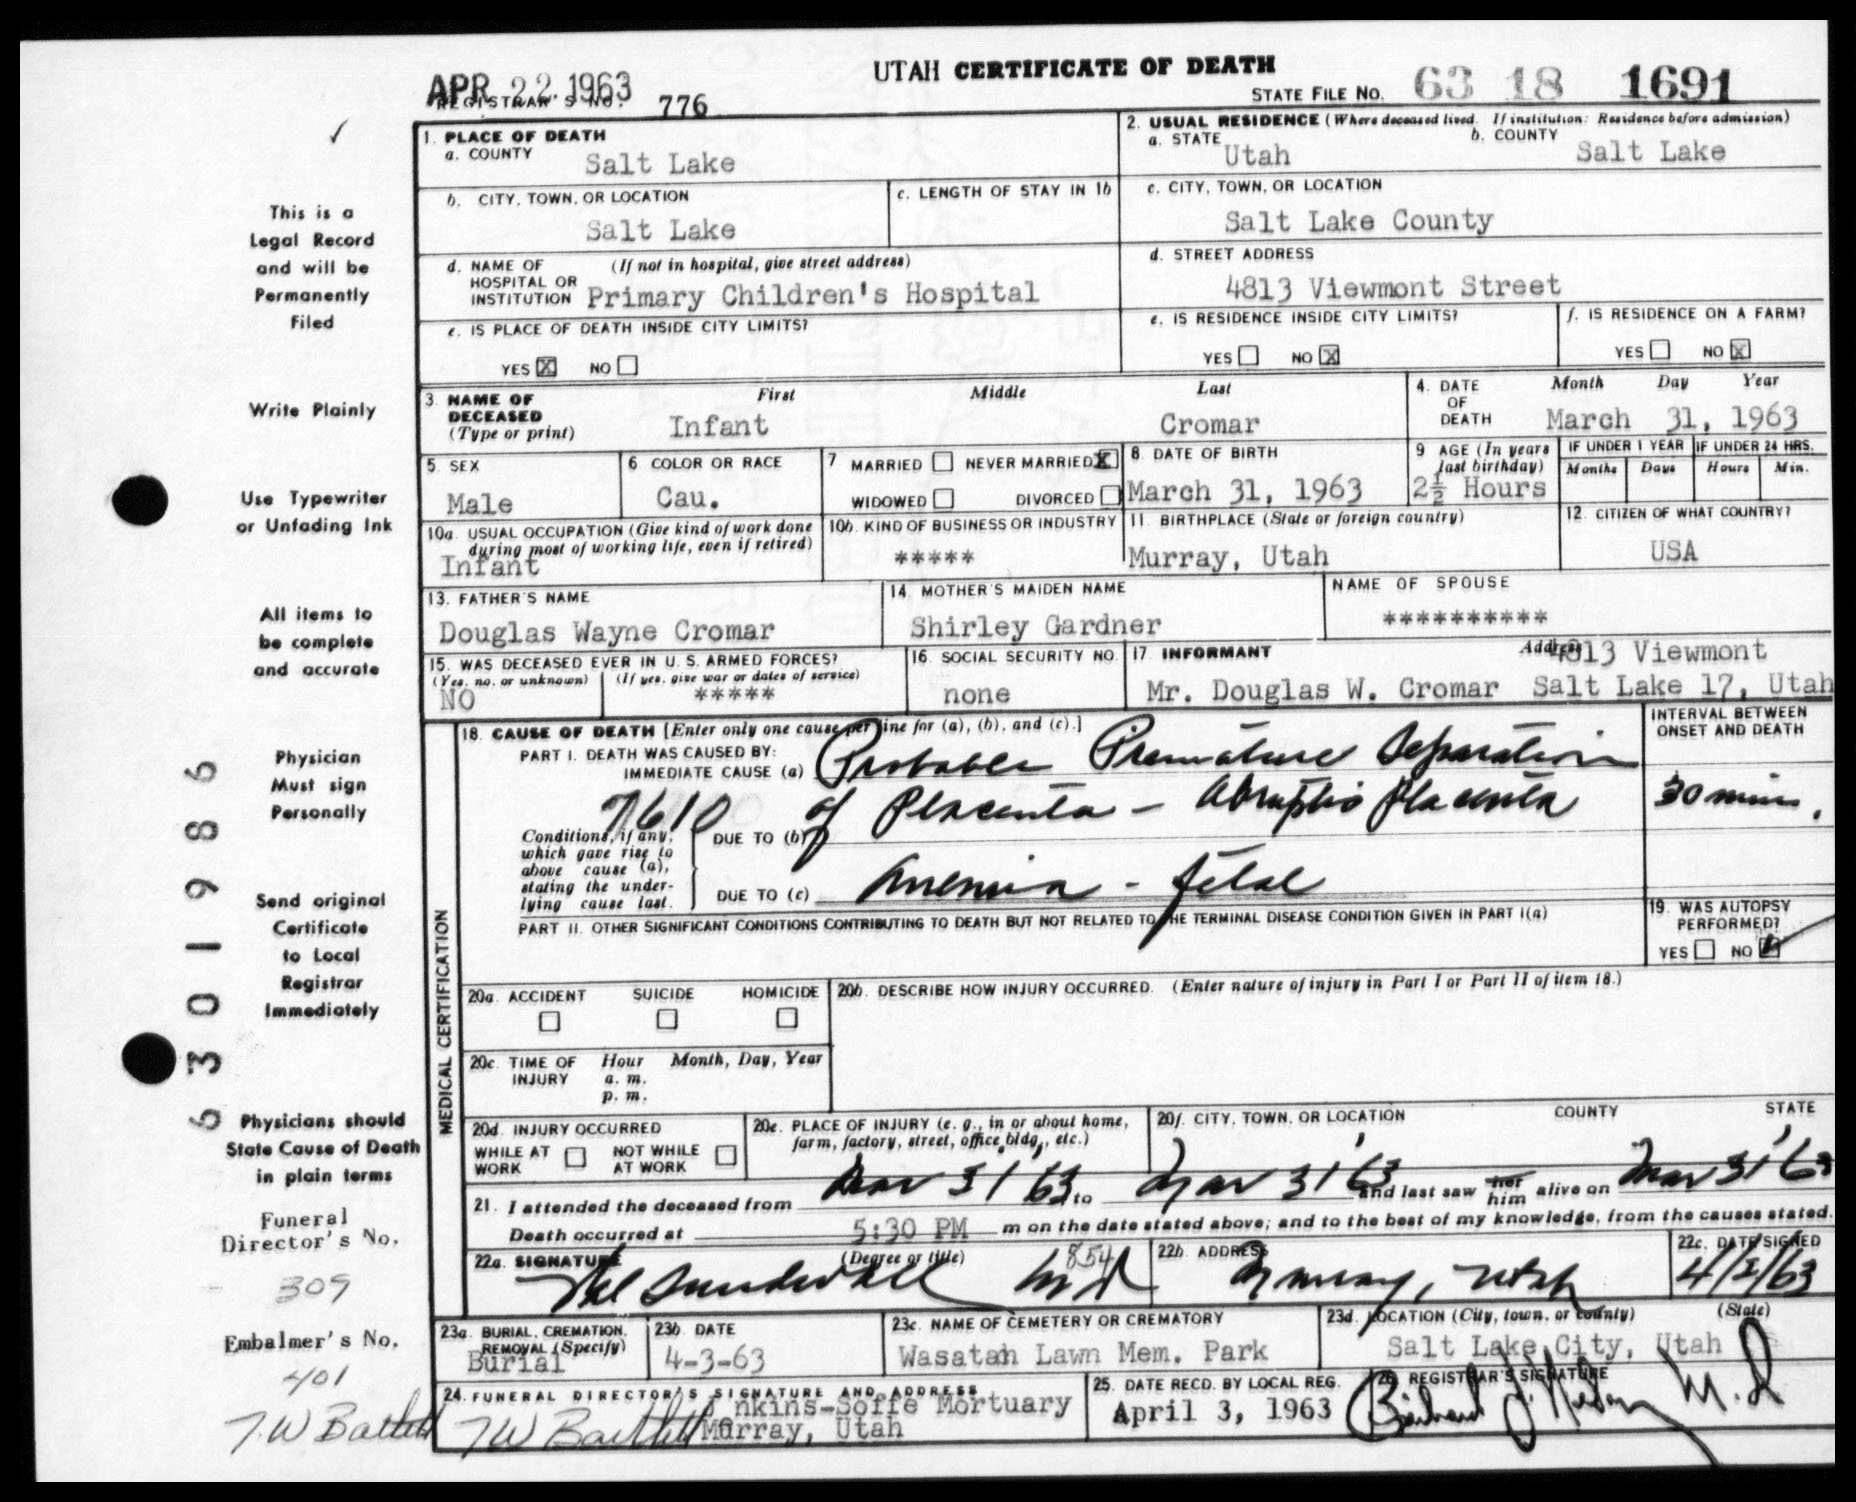 APR 22 1963
UTAH CERTIFICATE OF DEATH
REGISTRAR'S NO. 776
STATE FILE NO. 63 18 1691
1. PLACE OF DEATH
a. COUNTY Salt Lake
2. USUAL RESIDENCE (Where deceased lived. If institution: Residence before admission)
a. STATE Utah b. COUNTY Salt Lake
b. CITY, TOWN, OR LOCATION Salt Lake
c. LENGTH OF STAY IN 1b
c. CITY, TOWN, OR LOCATION
Salt Lake County
d. NAME OF HOSPITAL OR INSTITUTION (If not in hospital, give street address)
Primary Children's Hospital
d. STREET ADDRESS
4813 Viewmont Street
e. IS PLACE OF DEATH INSIDE CITY LIMITS?
YES X NO
e. IS RESIDENCE INSIDE CITY LIMITS?
YES NO X
f. IS RESIDENCE ON A FARM?
YES NO X
3. NAME OF DECEASED (Type or print)
First Middle Last
Infant Cromar
4. DATE OF DEATH Month Day Year
March 31, 1963
5. SEX
Male
6. COLOR OR RACE
Cau.
7 MARRIED NEVER MARRIED X
WIDOWED DIVORCED
8. DATE OF BIRTH
March 31, 1963
9 AGE (In years last birthday)
2½ Hours
IF UNDER 1 YEAR
Months Days
IF UNDER 24 HRS.
Hours Min.
10a. USUAL OCCUPATION (Give kind of work done during most of working life, even if retired)
Infant
10b. KIND OF BUSINESS OR INDUSTRY
*****
11. BIRTHPLACE (State or foreign country)
Murray, Utah
12. CITIZEN OF WHAT COUNTRY?
USA
13. FATHER'S NAME
Douglas Wayne Cromar
14. MOTHER'S MAIDEN NAME
Shirley Gardner
NAME OF SPOUSE
**********
15. WAS DECEASED EVER IN U. S. ARMED FORCES?
(Yes, no, or unknown) (If yes, give war or dates of service)
NO *****
16. SOCIAL SECURITY NO.
none
17. INFORMANT Address 4813 Viewmont
Mr. Douglas W. Cromar Salt Lake 17, Utah
18. CAUSE OF DEATH [Enter only one cause per line for (a), (b), and (c).]
INTERVAL BETWEEN ONSET AND DEATH
PART I. DEATH WAS CAUSED BY:
IMMEDIATE CAUSE (a) Probable Premature Separation
7610 of Placenta - Abruptio Placenta 30 min.
Conditions, if any, which gave rise to above cause (a), stating the underlying cause last.
DUE TO (b)
DUE TO (c) Anemia - fetal
PART II. OTHER SIGNIFICANT CONDITIONS CONTRIBUTING TO DEATH BUT NOT RELATED TO THE TERMINAL DISEASE CONDITION GIVEN IN PART I(a)
19. WAS AUTOPSY PERFORMED?
YES NO
MEDICAL CERTIFICATION
20a. ACCIDENT SUICIDE HOMICIDE
20b. DESCRIBE HOW INJURY OCCURRED. (Enter nature of injury in Part I or Part II of item 18.)
20c. TIME OF INJURY Hour Month, Day, Year
a. m.
p. m.
20d. INJURY OCCURRED
WHILE AT WORK NOT WHILE AT WORK
20e. PLACE OF INJURY (e. g., in or about home, farm, factory, street, office bldg., etc.)
20f. CITY, TOWN, OR LOCATION COUNTY STATE
21. I attended the deceased from Mar 31 '63 to Mar 31 '63 and last saw her him alive on Mar 31 '63
Death occurred at 5:30 PM m on the date stated above; and to the best of my knowledge, from the causes stated.
22a. SIGNATURE (Degree or title)
Sundwall MD 854
22b. ADDRESS
Murray, Utah
22c. DATE SIGNED
4/1/63
23a. BURIAL, CREMATION, REMOVAL (Specify)
Burial
23b DATE
4-3-63
23c. NAME OF CEMETERY OR CREMATORY
Wasatah Lawn Mem. Park
23d. LOCATION (City, town, or county) (State)
Salt Lake City, Utah
24. FUNERAL DIRECTOR'S SIGNATURE AND ADDRESS
TW Bartlett nkins-Soffe Mortuary
Murray, Utah
25. DATE RECD. BY LOCAL REG.
April 3, 1963
26. REGISTRAR'S SIGNATURE
M.D
This is a
Legal Record
and will be
Permanently
Filed
Write Plainly
Use Typewriter
or Unfading Ink
All items to
be complete
and accurate
Physician
Must sign
Personally
Send original
Certificate
to Local
Registrar
Immediately
Physicians should
State Cause of Death
in plain terms
Funeral
Director's No.
309
Embalmer's No.
401
T.W Bartlett
6301986